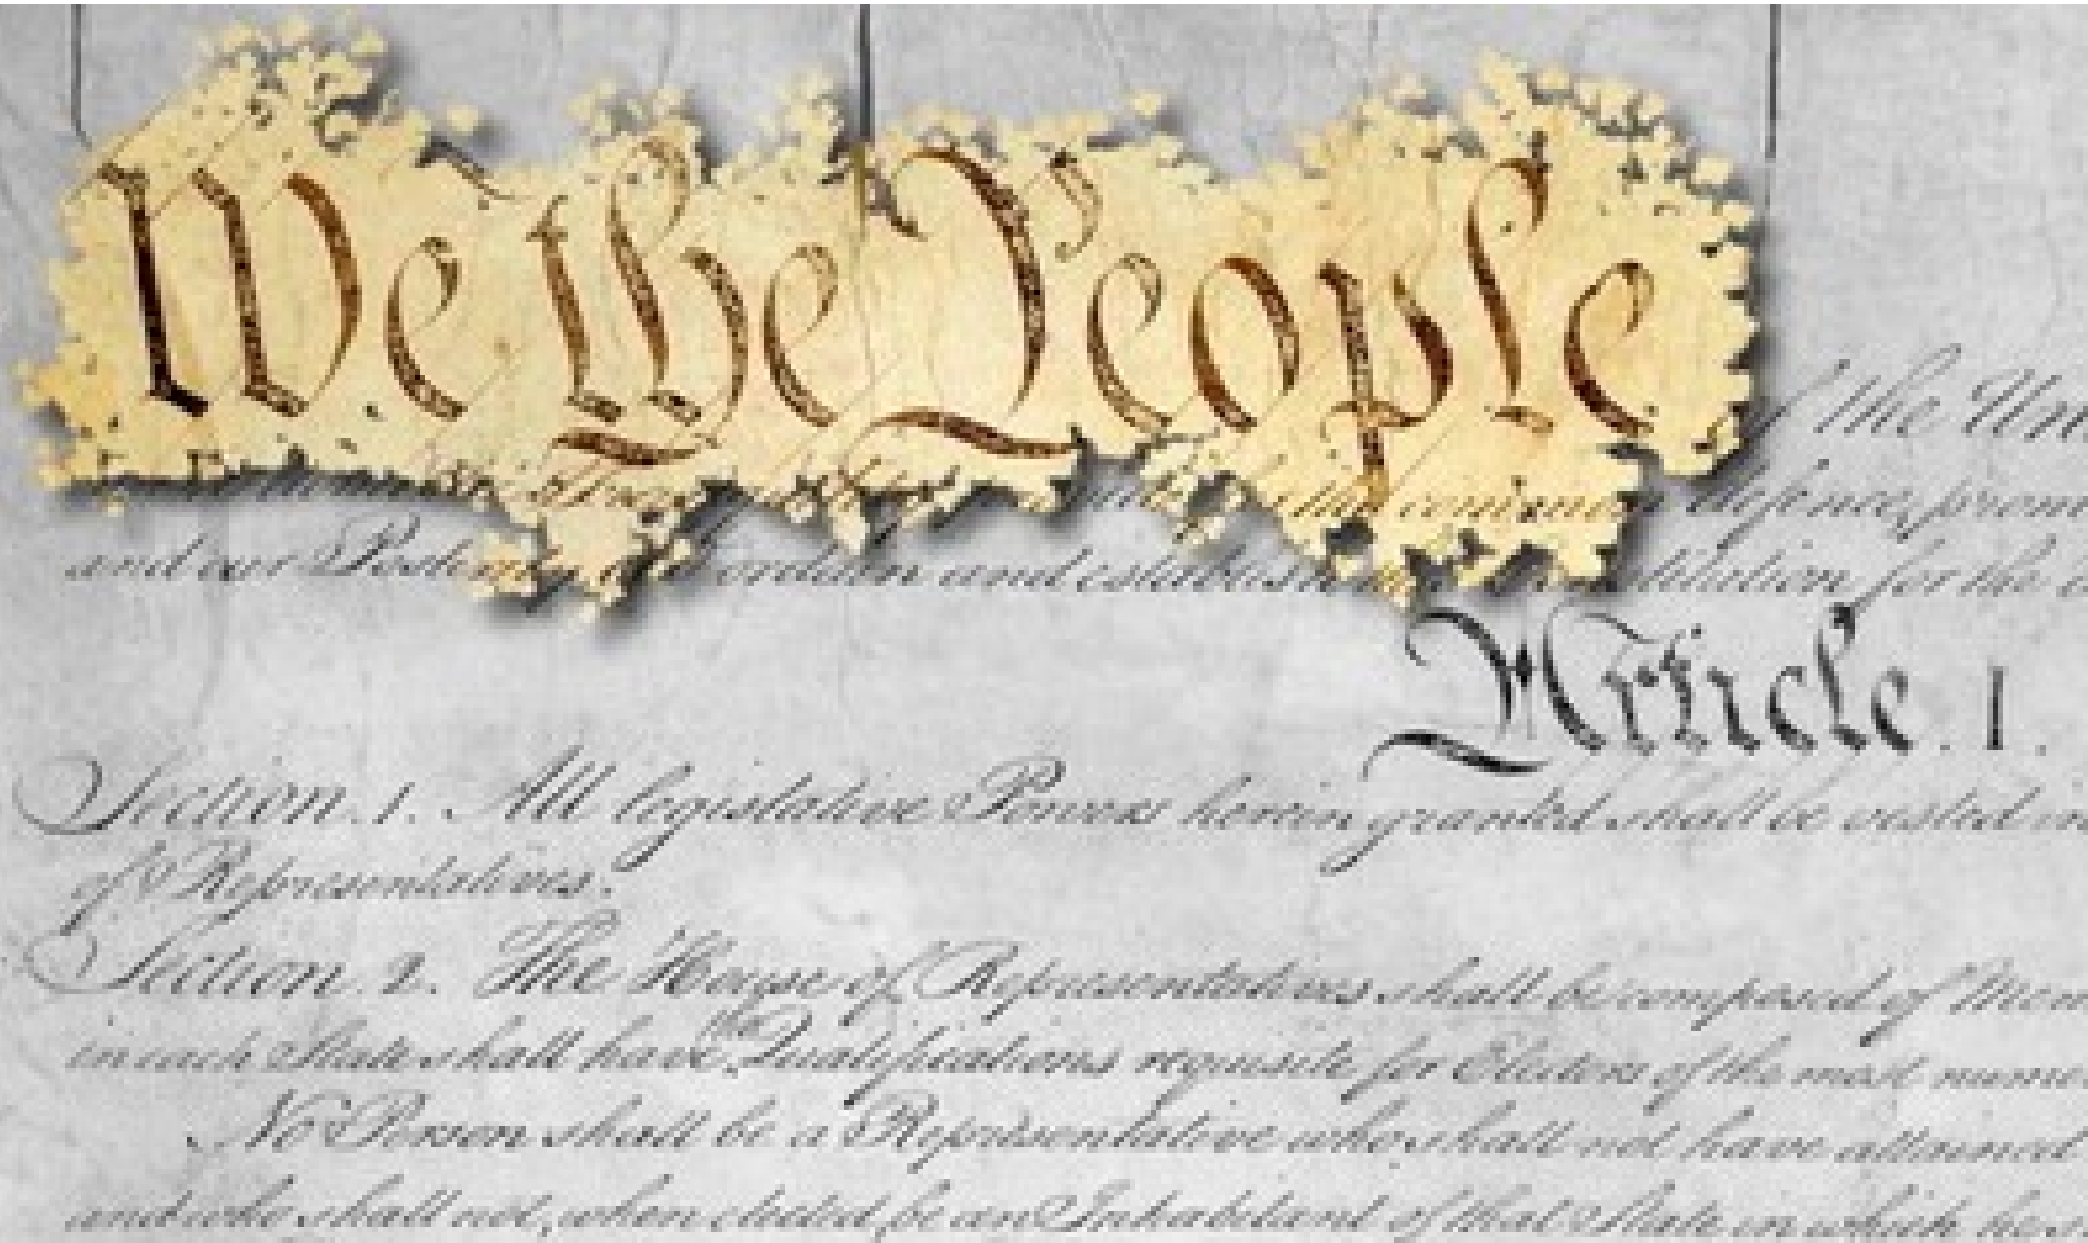 We the People
f the Un
this common defence, prom
and our Posterity, ordain and establish titution for the
Article. I.
Section. 1. All legislative Powers herein granted shall be vested in
of Representatives.
Section. 2. The House of Representatives shall be composed of Mem
in each State shall have the Qualifications requisite for Electors of the most nume
No Person shall be a Representative who shall not have attained
and who shall not, when elected, be an Inhabitant of that State in which he